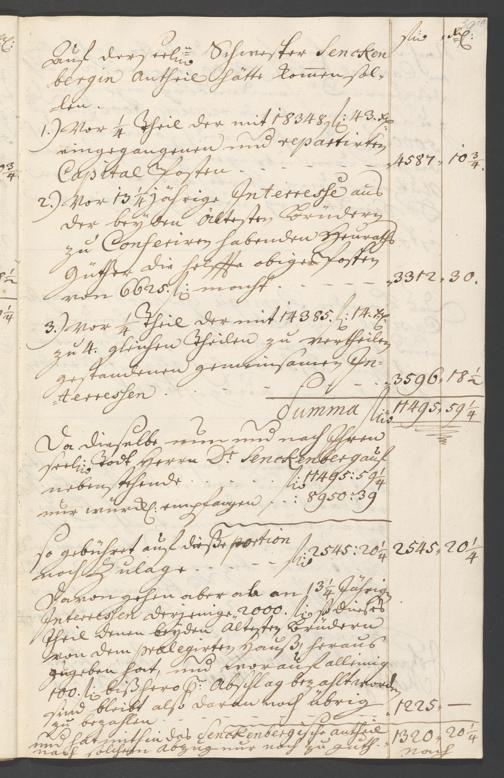 fl. xr.
Auf der seel. Schwester Sencken
bergin Antheil hätte kommen sol-
len.
1.) Vor ¼ Theil der mit 18348 fl: 43. xr
eingegangenen und repartirten
Capital Posten . . . 4587. 10¾.
2.) Vor 13¼ jährige Interresse aus
der beyden Ältesten Brüdern
zu Conferiren habenden Heuraths
Güther die helffte obiger Posten
von 6625 fl: macht . . . 3312. 30.
3.) Vor ¼ Theil der mit 14385. fl: 14. xr
zu 4. gleichen Theilen zu vertheilen
gestandenen gemeinsamen In-
terressen . . . 3596. 18½
Summa fl. 11495. 59¼
Da dieselbe nun und nach Ihren
seel. Todt Herrn Dr. Senckenberg auf
nebenstehende . . . fl. 11495: 59¼
nur würckl. empfangen . : 8950: 39
so gebühret auf diese portion
noch Zulage . . . fl: 2545: 20¼ 2545. 20¼
Davon gehen aber ab an 13¼ Jährigen
Interessen derjenige 2000. fl. so dieses
Theil denen beyden Ältesten Brüdern
von dem prælegirten Hauß heraus
gegeben hat, und worauf alleinig
100. fl. bißhero Abschlag bezahlt worden
sind bleibt also daran noch übrig
zu bezahlen . . . 1225. —
und hat mithin das Senckenbergische antheil 1320. 20¼
nach solchem Abzug nur noch zu guth.
nach